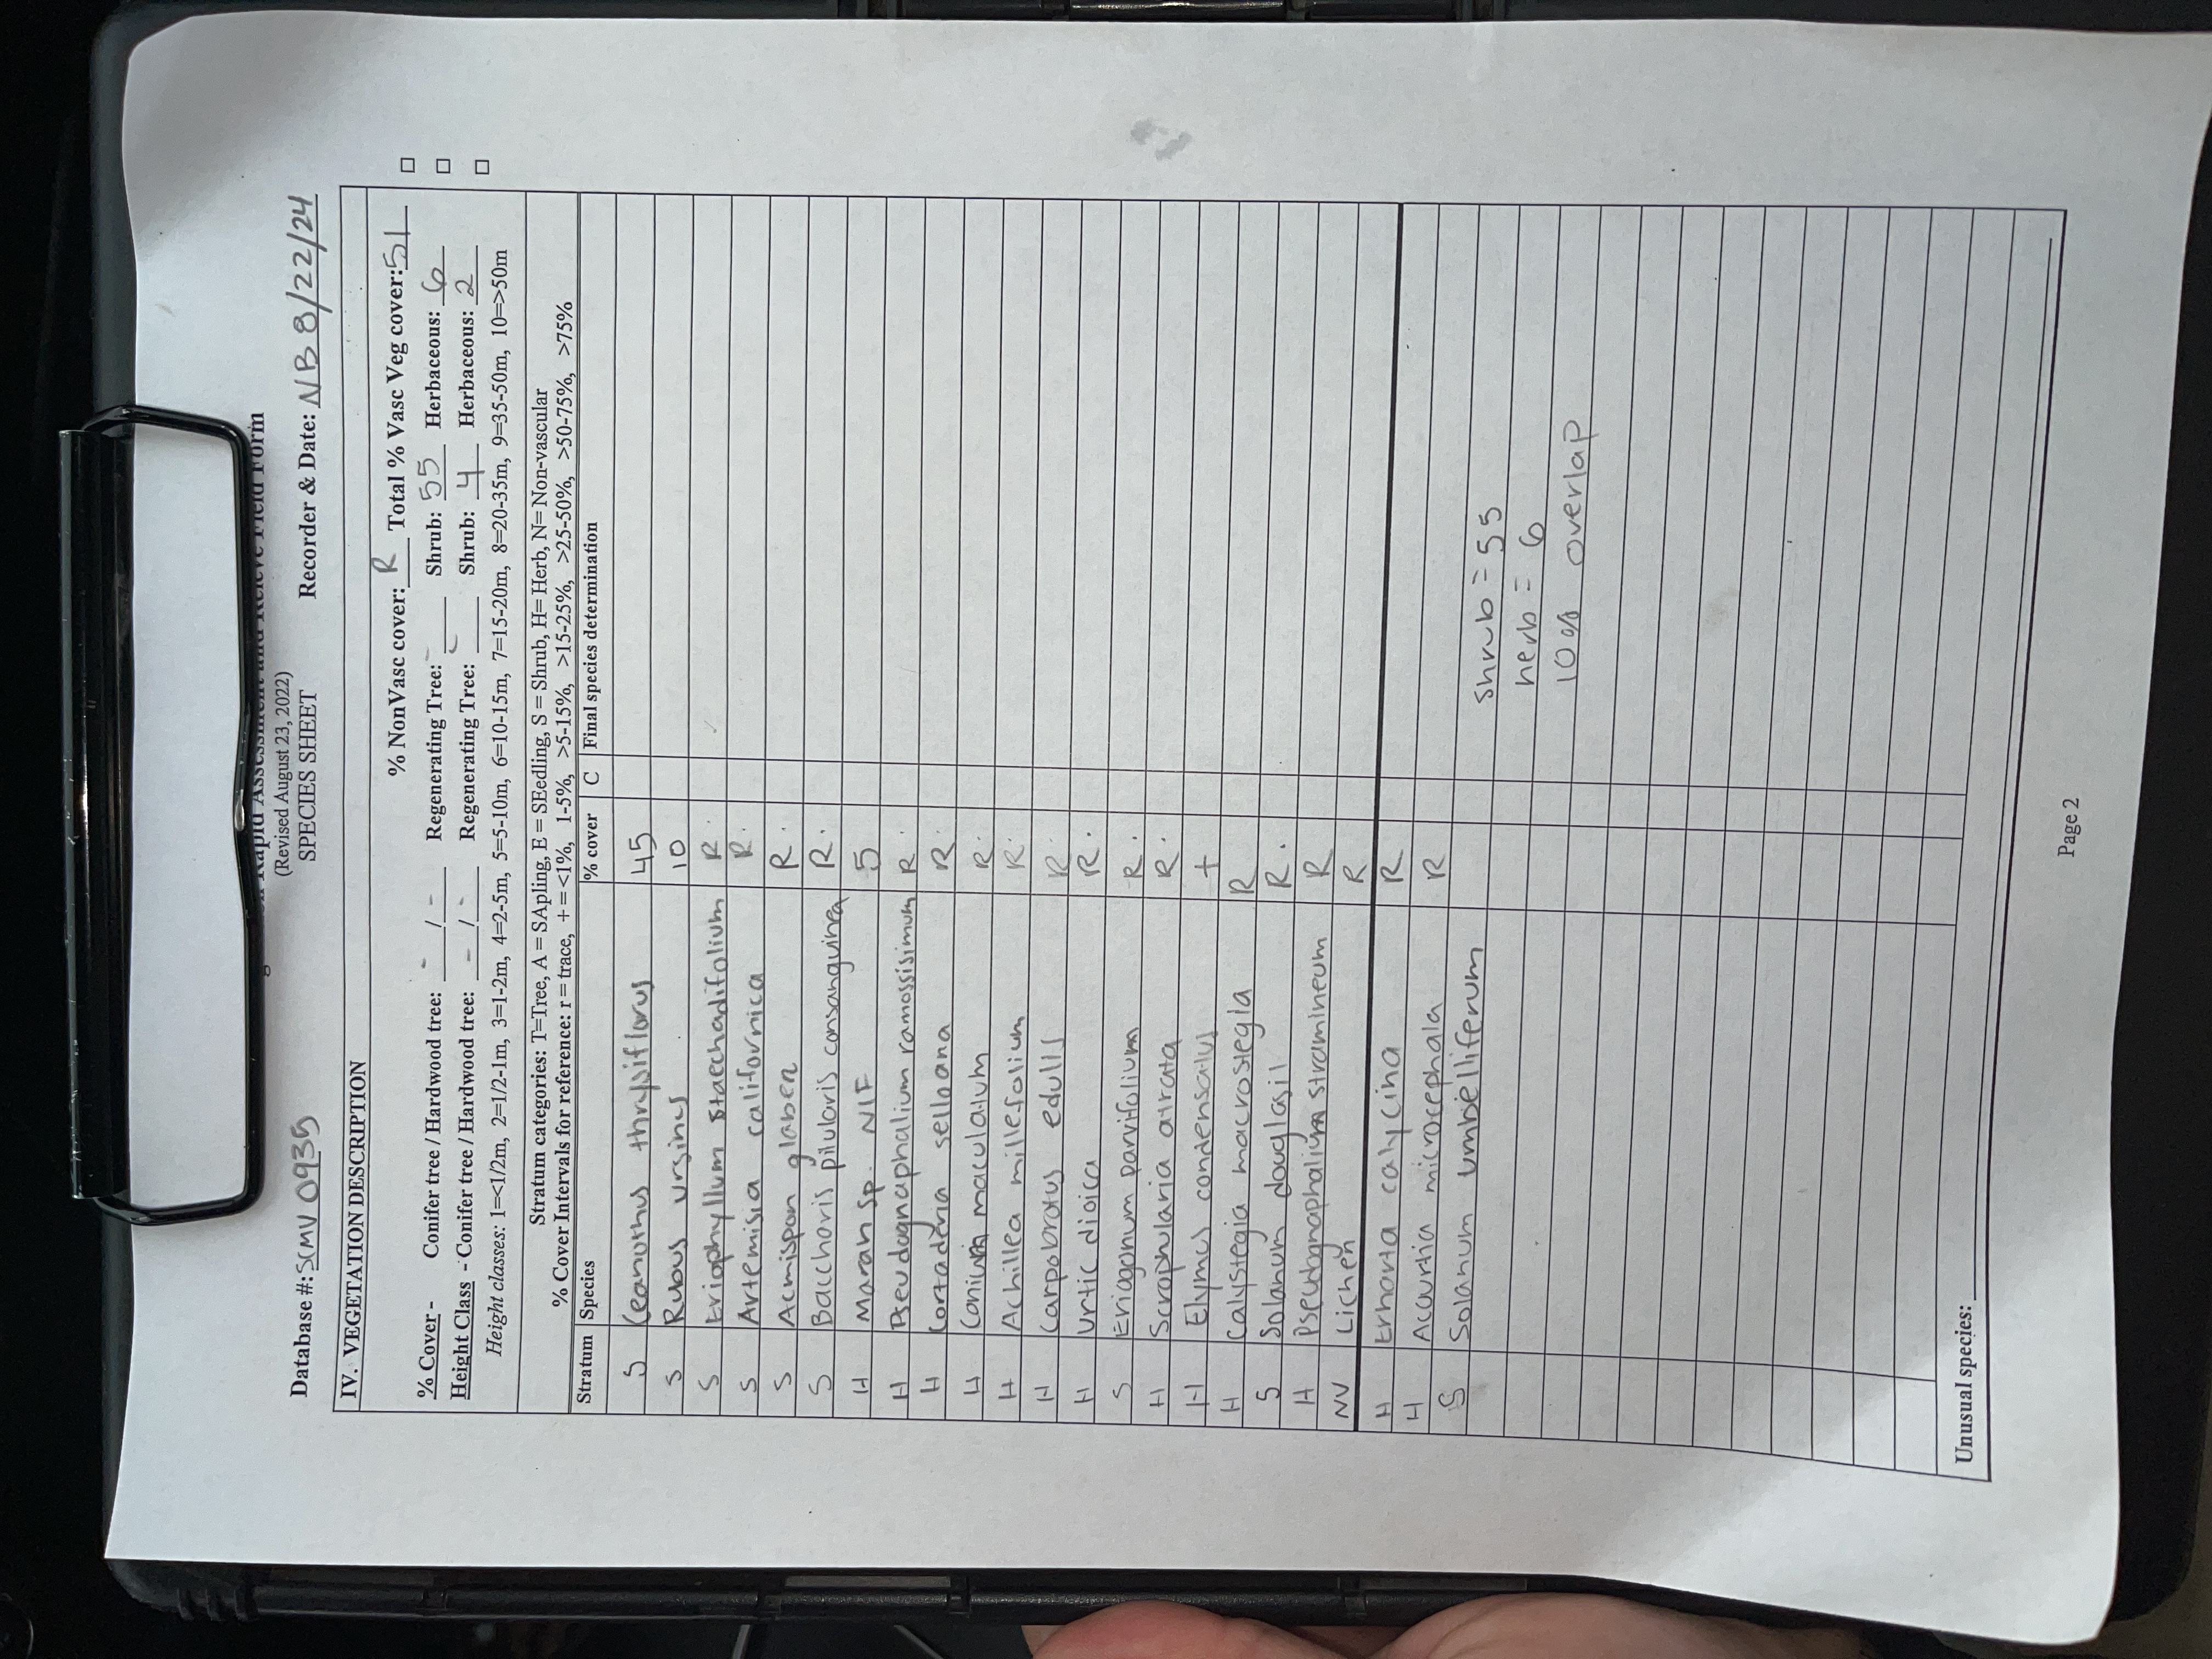 Rapid Assessment and Relevé Field Form
(Revised August 23, 2022)
SPECIES SHEET
Database #: SCMV 0935 Recorder & Date: NB 8/22/24
IV. VEGETATION DESCRIPTION
% NonVasc cover: R Total % Vasc Veg cover: 51 □
% Cover - Conifer tree / Hardwood tree: - / - Regenerating Tree: - Shrub: 55 Herbaceous: 6 □
Height Class - Conifer tree / Hardwood tree: - / - Regenerating Tree: - Shrub: 4 Herbaceous: 2 □
Height classes: 1=<1/2m, 2=1/2-1m, 3=1-2m, 4=2-5m, 5=5-10m, 6=10-15m, 7=15-20m, 8=20-35m, 9=35-50m, 10=>50m
Stratum categories: T=Tree, A = SApling, E = SEedling, S = Shrub, H= Herb, N= Non-vascular
% Cover Intervals for reference: r = trace, + = <1%, 1-5%, >5-15%, >15-25%, >25-50%, >50-75%, >75%
Stratum Species % cover C Final species determination
S Ceanothus thrysiflorus 45
S Rubus ursinus 10
S Eriophyllum staechadifolium R.
S Artemisia californica R.
S Acmispon glaber R.
S Baccharis pilularis consanguinea R.
H Marah sp. NIF 5
H Pseudognaphalium ramossisimum R.
H Cortaderia selloana R.
H Conium maculatum R.
H Achillea millefolium R.
H Carpobrotus edulis R.
H Urtic dioica R.
S Eriogonum parvifolium R.
H Scrophularia atrata R.
H Elymus condensatus +
H Calystegia macrostegia R
S Solanum douglasii R.
H Pseudognaphalium stramineum R
NV Lichen R
H Erharta calycina R
H Acourtia microcephala R
S Solanum umbelliferum
Shrub = 55
herb = 6
10% overlap
Unusual species:
Page 2